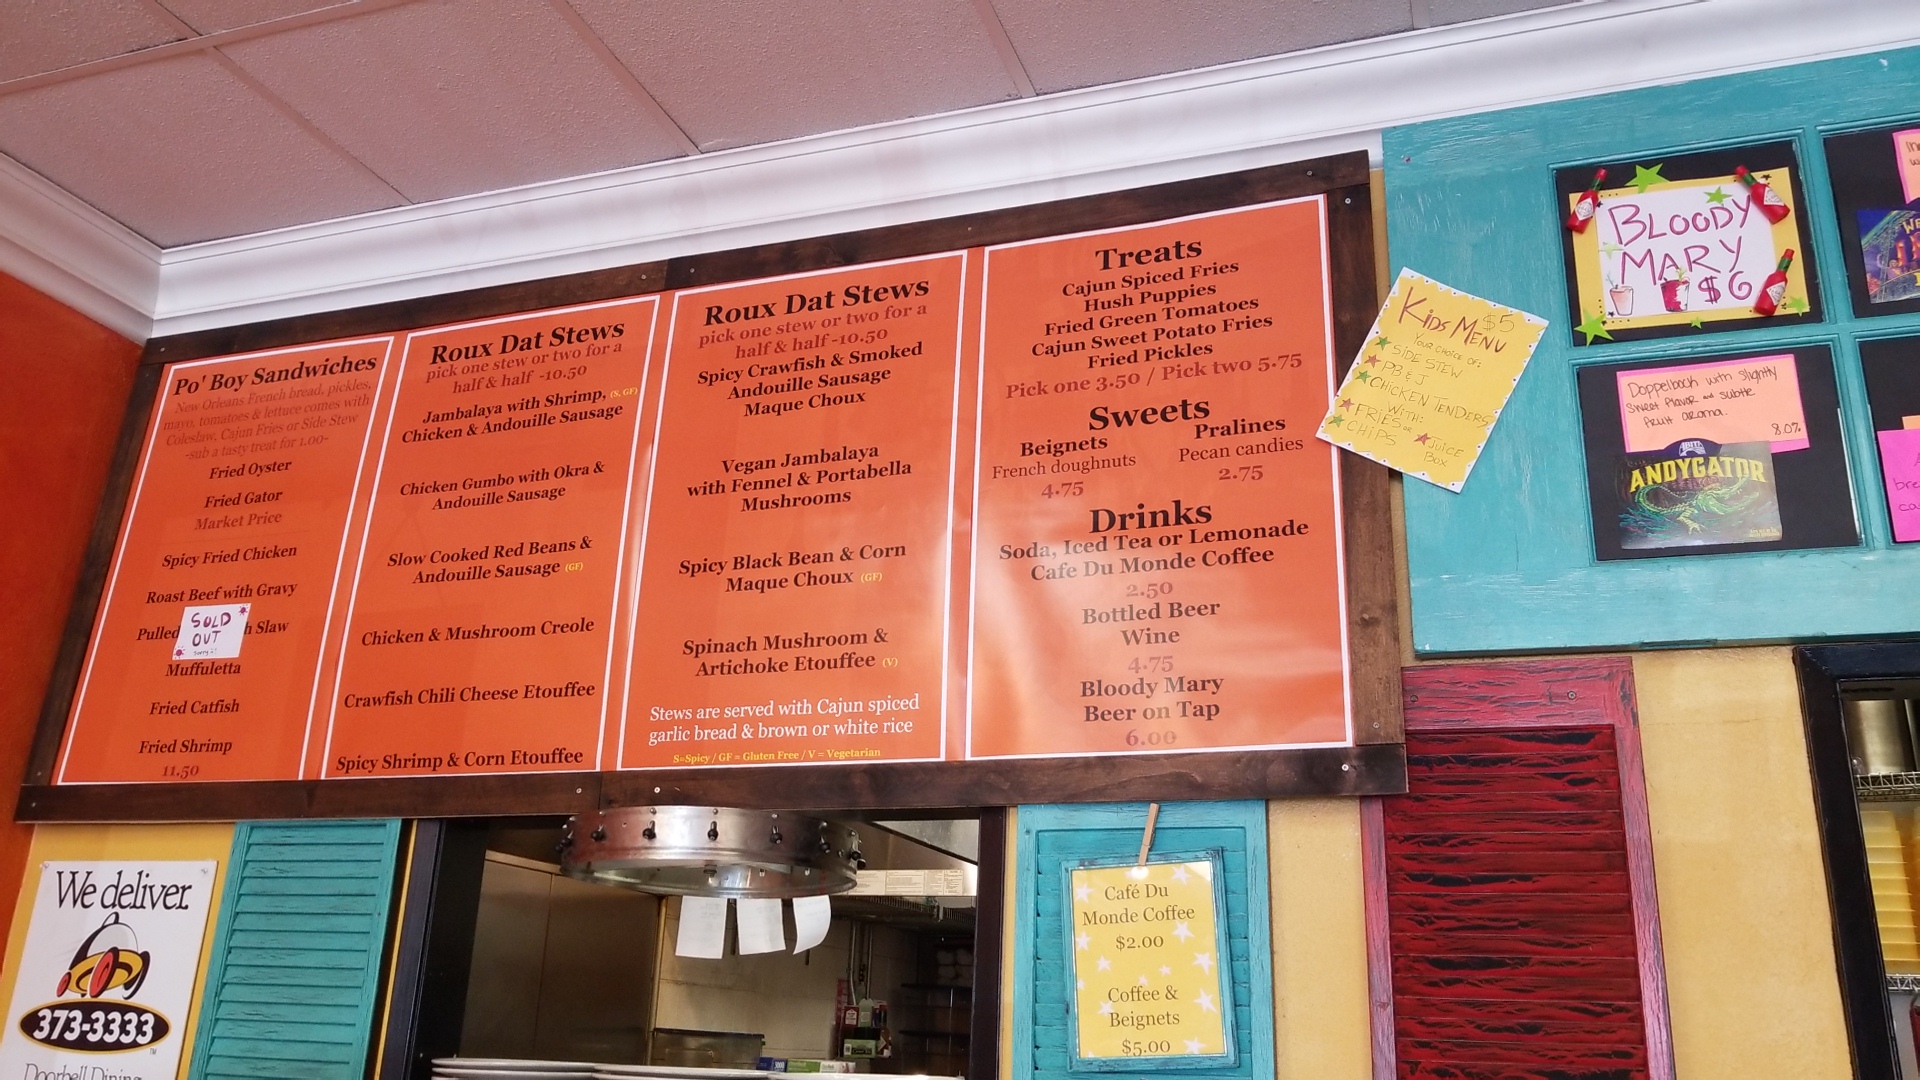 Po' Boy Sandwiches
New Orleans French bread, pickles,
mayo, tomatoes & lettuce comes with
Coleslaw, Cajun Fries or Side Stew
-sub a tasty treat for 1.00-
Fried Oyster
Fried Gator
Market Price
Spicy Fried Chicken
Roast Beef with Gravy
Pulled h Slaw
SOLD
OUT
Muffuletta
Fried Catfish
Fried Shrimp
11.50
Roux Dat Stews
pick one stew or two for a
half & half -10.50
Jambalaya with Shrimp, (S, GF)
Chicken & Andouille Sausage
Chicken Gumbo with Okra &
Andouille Sausage
Slow Cooked Red Beans &
Andouille Sausage (GF)
Chicken & Mushroom Creole
Crawfish Chili Cheese Etouffee
Spicy Shrimp & Corn Etouffee
Roux Dat Stews
pick one stew or two for a
half & half -10.50
Spicy Crawfish & Smoked
Andouille Sausage
Maque Choux
Vegan Jambalaya
with Fennel & Portabella
Mushrooms
Spicy Black Bean & Corn
Maque Choux (GF)
Spinach Mushroom &
Artichoke Etouffee (V)
Stews are served with Cajun spiced
garlic bread & brown or white rice
S=Spicy / GF = Gluten Free / V = Vegetarian
Treats
Cajun Spiced Fries
Hush Puppies
Fried Green Tomatoes
Cajun Sweet Potato Fries
Fried Pickles
Pick one 3.50 / Pick two 5.75
Sweets
Beignets
French doughnuts
4.75
Pralines
Pecan candies
2.75
Drinks
Soda, Iced Tea or Lemonade
Cafe Du Monde Coffee
2.50
Bottled Beer
Wine
4.75
Bloody Mary
Beer on Tap
6.00
KIDS MENU $5
YOUR CHOICE OF:
SIDE STEW
PB & J
CHICKEN TENDERS
WITH:
FRIES or
CHIPS
JUICE
BOX
BLOODY
MARY
$6
Doppelbock with slightly
sweet flavor and subtle
fruit aroma.
8.0%
ABITA
ANDYGATOR
We deliver.
373-3333
TM
Doorbell Dining
Café Du
Monde Coffee
$2.00
Coffee &
Beignets
$5.00